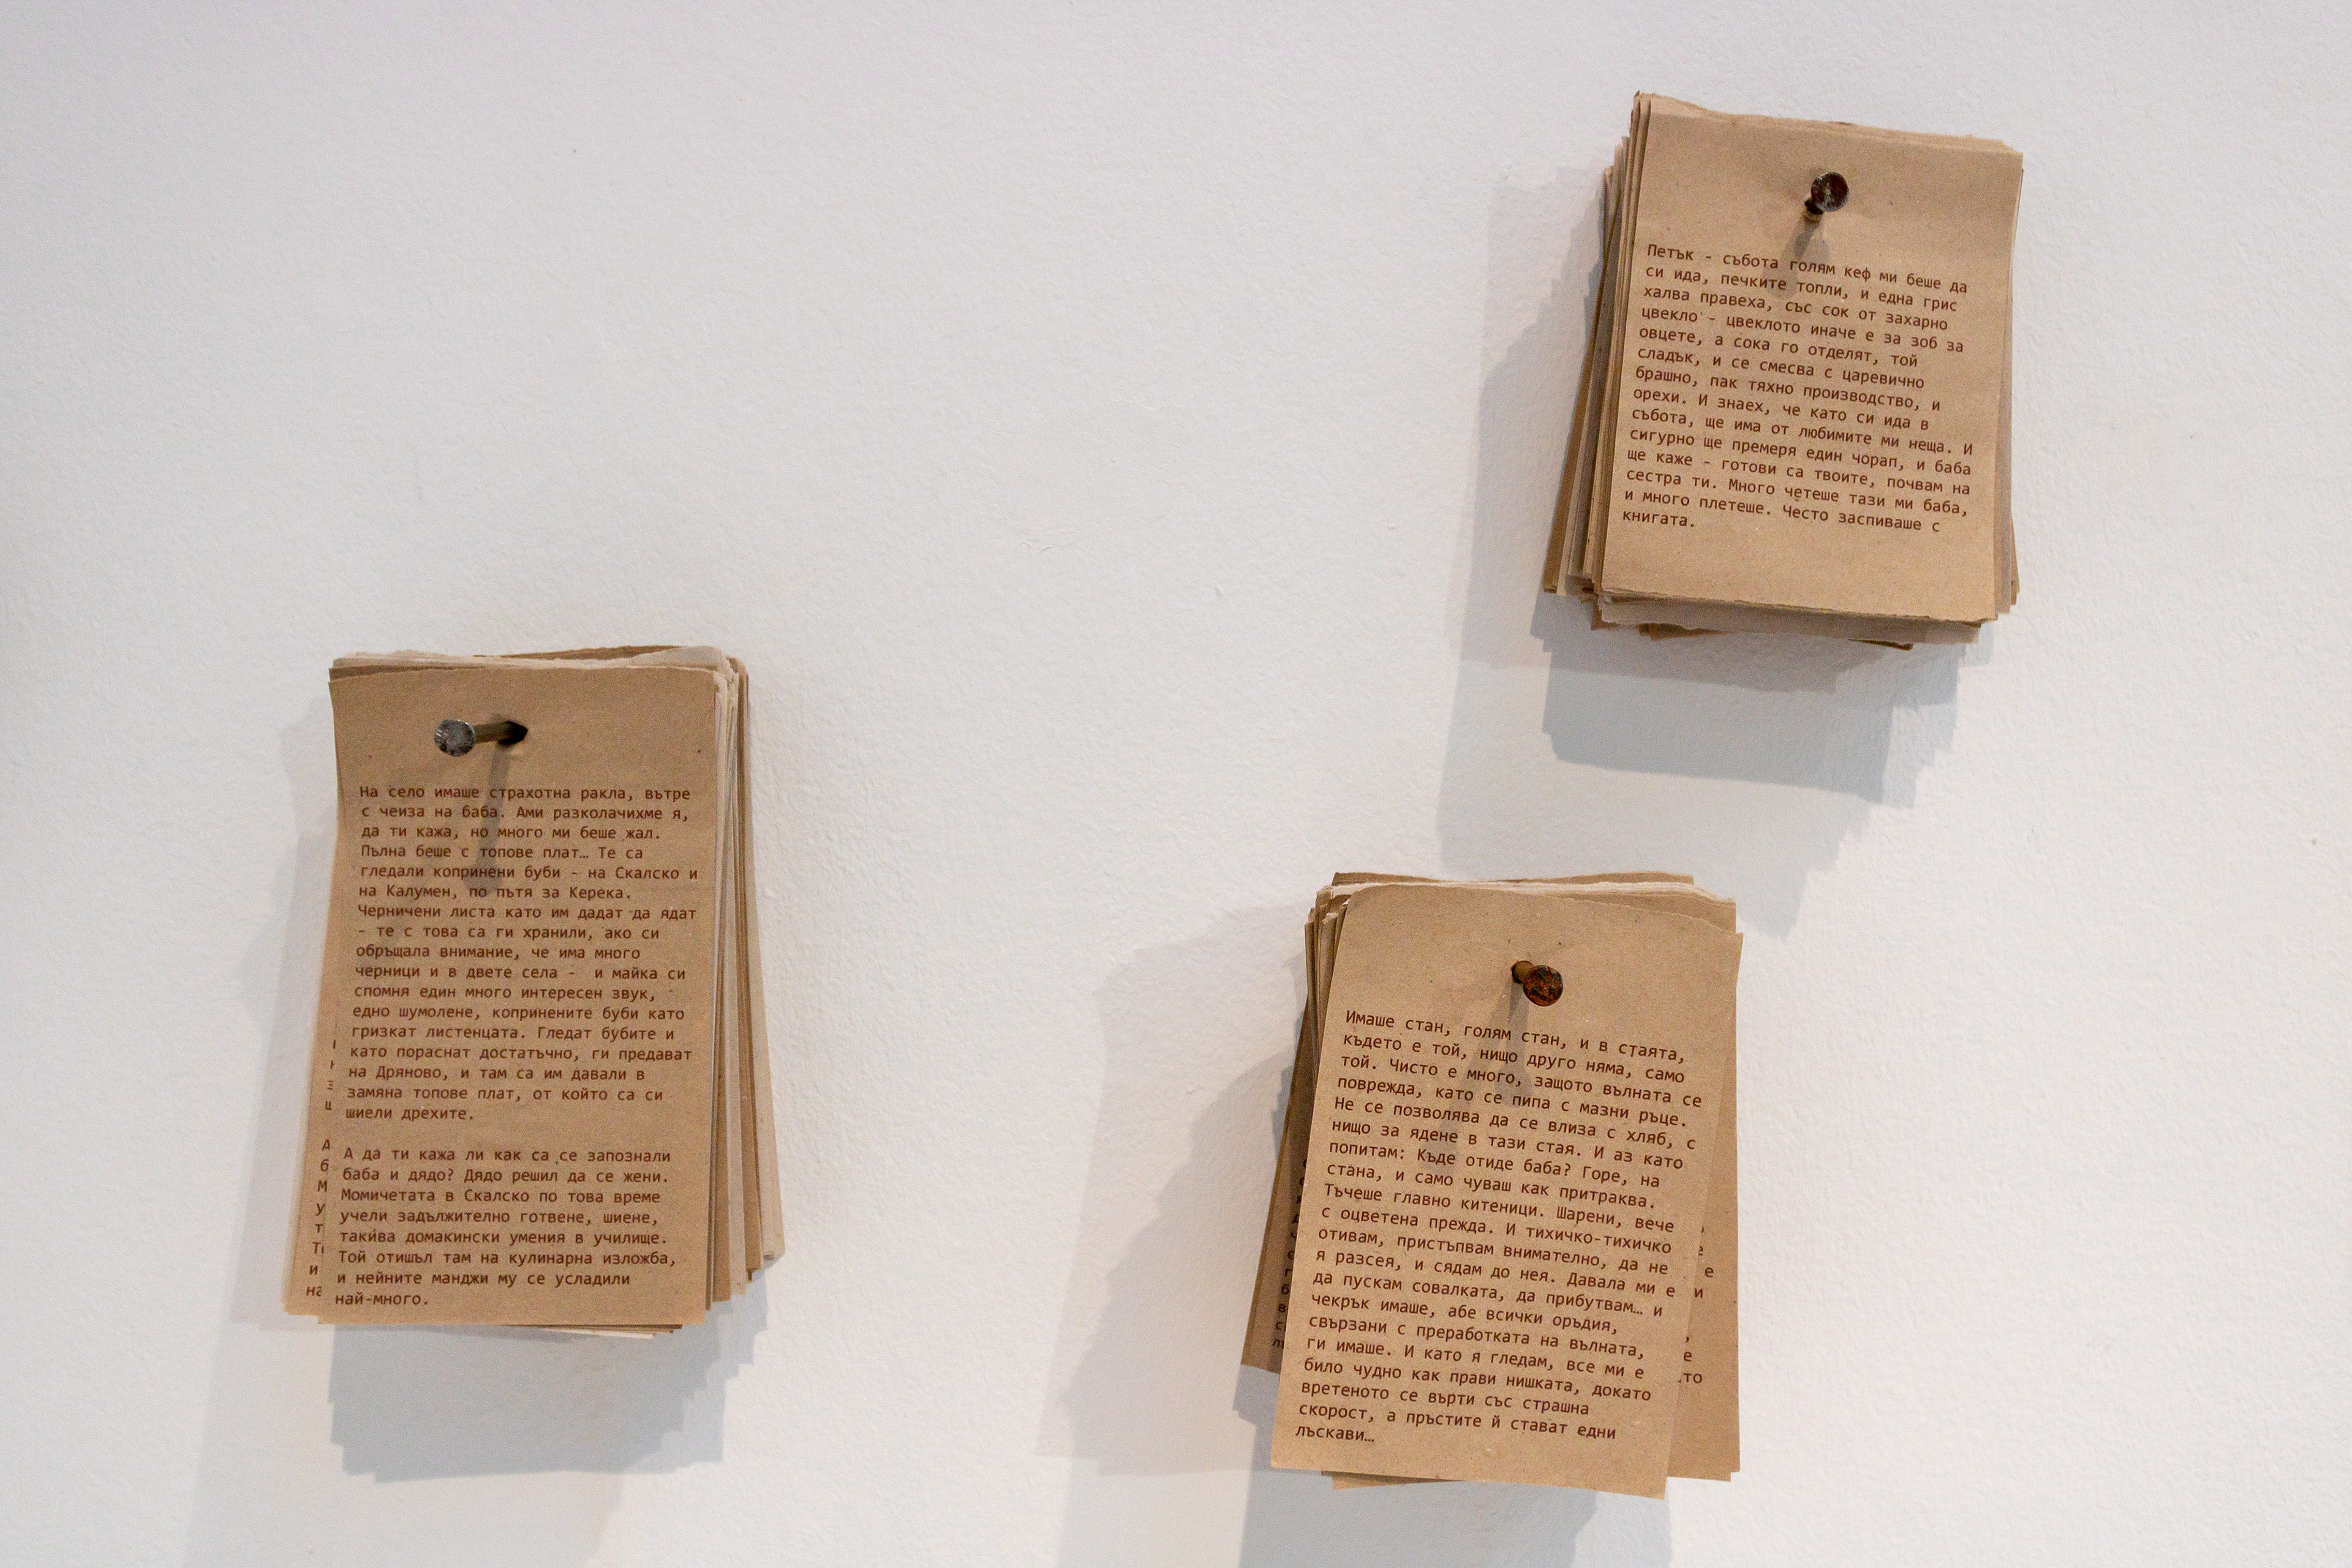 На село имаше страхотна ракла, вътре
с чеиза на баба. Ами разколачихме я,
да ти кажа, но много ми беше жал.
Пълна беше с топове плат… Те са
гледали копринени буби - на Скалско и
на Калумен, по пътя за Керека.
Черничени листа като им дадат да ядат
- те с това са ги хранили, ако си
обръщала внимание, че има много
черници и в двете села - и майка си
спомня един много интересен звук,
едно шумолене, копринените буби като
гризкат листенцата. Гледат бубите и
като пораснат достатъчно, ги предават
на Дряново, и там са им давали в
замяна топове плат, от който са си
шиели дрехите.
А да ти кажа ли как са се запознали
баба и дядо? Дядо решил да се жени.
Момичетата в Скалско по това време
учели задължително готвене, шиене,
такива домакински умения в училище.
Той отишъл там на кулинарна изложба,
и нейните манджи му се усладили
най-много.
Петък - събота голям кеф ми беше да
си ида, печките топли, и една грис
халва правеха, със сок от захарно
цвекло - цвеклото иначе е за зоб за
овцете, а сока го отделят, той
сладък, и се смесва с царевично
брашно, пак тяхно производство, и
орехи. И знаех, че като си ида в
събота, ще има от любимите ми неща. И
сигурно ще премеря един чорап, и баба
ще каже - готови са твоите, почвам на
сестра ти. Много четеше тази ми баба,
и много плетеше. Често заспиваше с
книгата.
Имаше стан, голям стан, и в стаята,
където е той, нищо друго няма, само
той. Чисто е много, защото вълната се
поврежда, като се пипа с мазни ръце.
Не се позволява да се влиза с хляб, с
нищо за ядене в тази стая. И аз като
попитам: Къде отиде баба? Горе, на
стана, и само чуваш как притраква.
Тъчеше главно китеници. Шарени, вече
с оцветена прежда. И тихичко-тихичко
отивам, пристъпвам внимателно, да не
я разсея, и сядам до нея. Давала ми е
да пускам совалката, да прибутвам… и
чекрък имаше, абе всички оръдия,
свързани с преработката на вълната,
ги имаше. И като я гледам, все ми е
било чудно как прави нишката, докато
вретеното се върти със страшна
скорост, а пръстите й стават едни
лъскави…